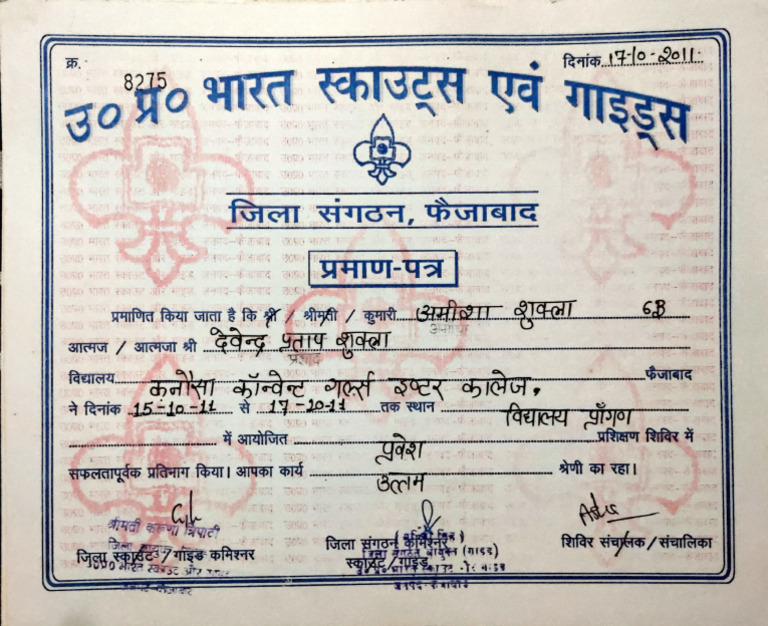 क्र. 8275
दिनांक 17-10-2011
उ० प्र० भारत स्काउट्स एवं गाइड्स
जिला संगठन, फैजाबाद
प्रमाण-पत्र
प्रमाणित किया जाता है कि श्री / श्रीमती / कुमारी अमीशा शुक्ला 6B
आत्मज / आत्मजा श्री देवेन्द्र प्रताप शुक्ला
प्रसाद
विद्यालय कनौसा कॉन्वेन्ट गर्ल्स इण्टर कालेज. फैजाबाद
ने दिनांक 15-10-11 से 17-10-11 तक स्थान विद्यालय प्राँगण
में आयोजित प्रवेश प्रशिक्षण शिविर में
सफलतापूर्वक प्रतिभाग किया। आपका कार्य उत्तम श्रेणी का रहा।
श्रीमती करूणा त्रिपाठी
जिला स्काउट / गाइड कमिश्नर
जिला संगठन कमिश्नर
स्काउट / गाइड
शिविर संचालक / संचालिका